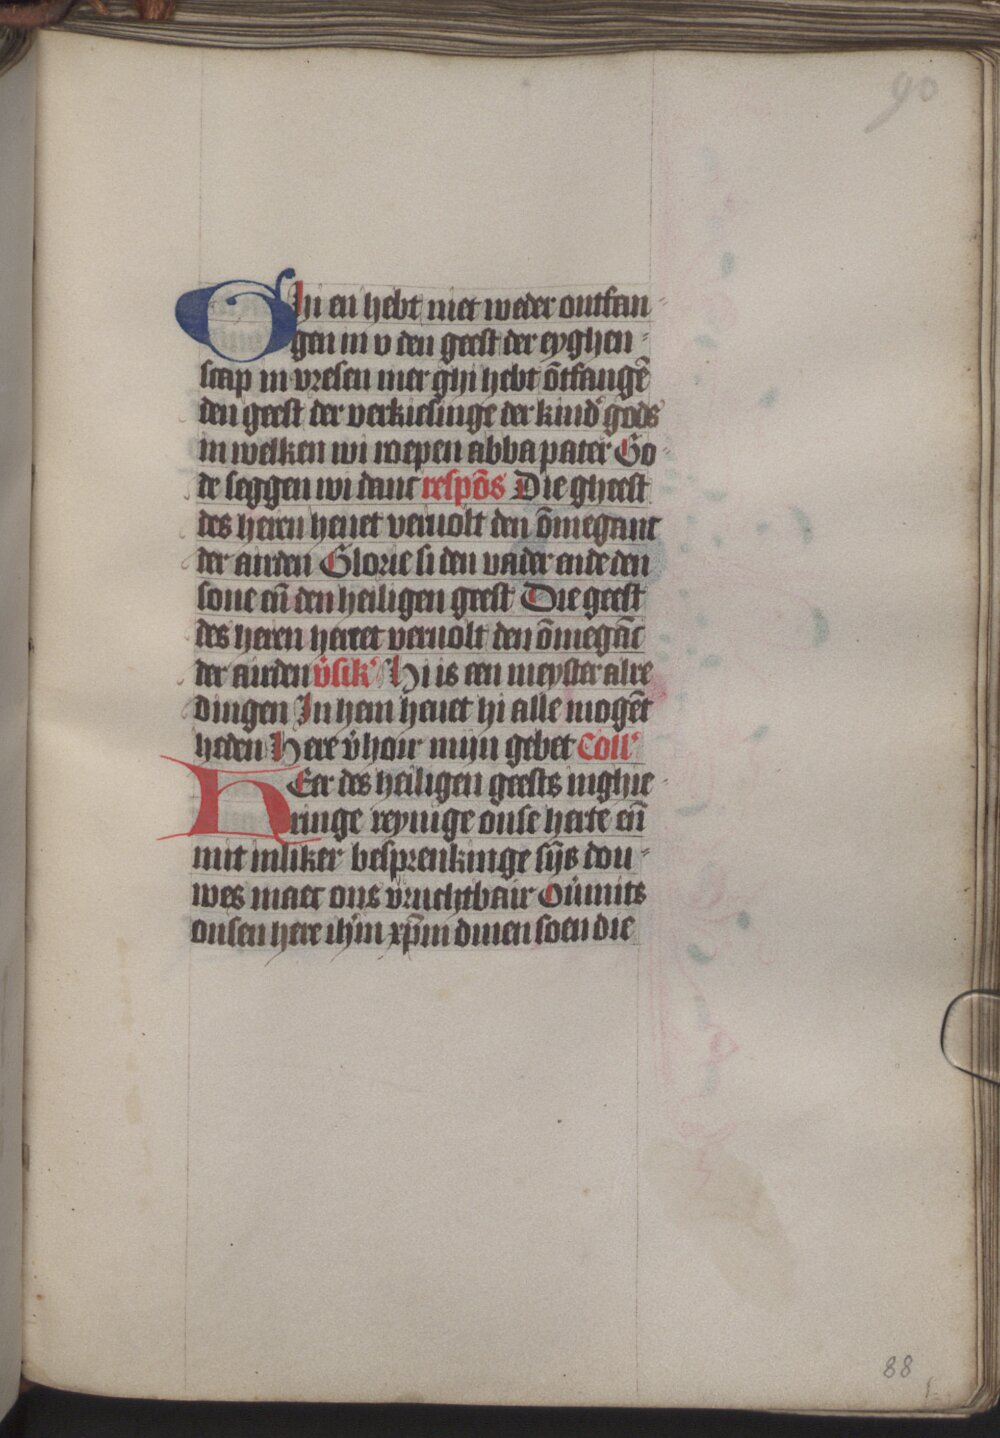 90
Ghi en hebt niet weder ontfan-
gen in v den geest der eyghen-
scap in vresen mer ghi hebt ōtfangē
den geest der verkiesinge der kind' gods
in welken wi roepen abba pater Go-
de seggen wi danc respōs Die gheest
des heren heuet veruolt den ōmeganc
der airden Glorie si den vader ende den
sone eñ den heiligen geest Die geest
des heren heuet veruolt den ōmegāc
der airden v̓sik' Hi is een meyster alre
dingen In hem heuet hi alle mogēt
heden Here v̓hoir mijn gebet Coll'
HEer des heiligen geests inghie-
ringe reynige onse herte eñ
mit inliker besprenkinge sijs dou-
wes maec ons vruchtbair Ou̓mits
onsen here ih'm xp̄m dinen soen die
88